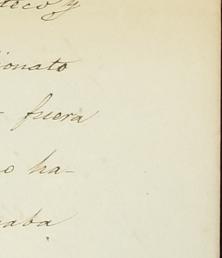 teco y
ionato
fuera
o ha-
aba